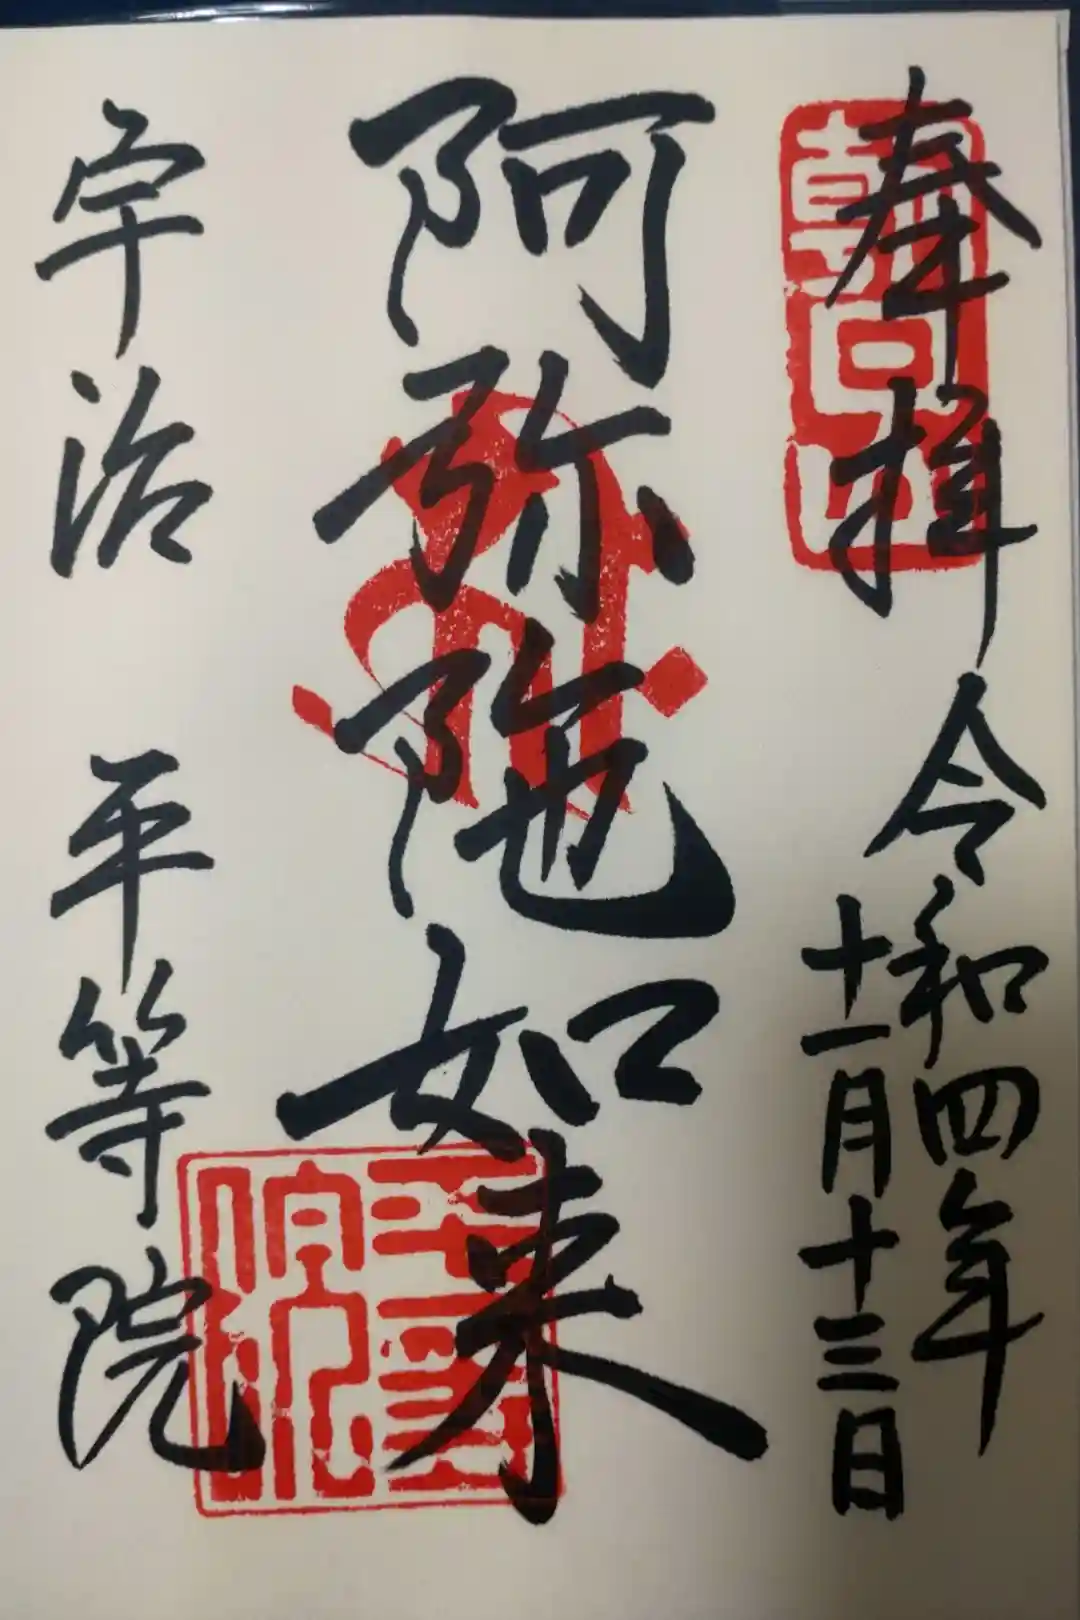 奉拝 令和四年
十一月十三日
阿弥陀如来
宇治 平等院
朝日山
平等院